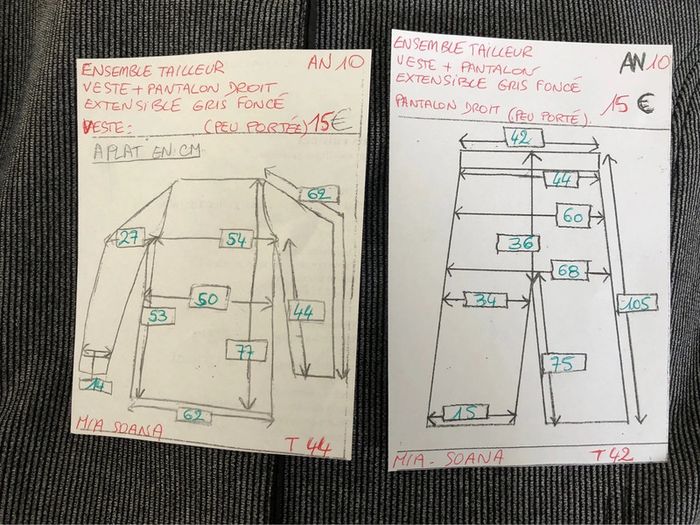 ENSEMBLE TAILLEUR AN 10
VESTE + PANTALON DROIT
EXTENSIBLE GRIS FONCÉ
VESTE: (PEU PORTÉE) 15€
A PLAT EN CM
62
27
54
50
53
44
77
14
62
MIA SOANA T 44
ENSEMBLE TAILLEUR AN 10
VESTE + PANTALON
EXTENSIBLE GRIS FONCÉ
PANTALON DROIT (PEU PORTÉ). 15 €
42
44
60
36
68
34
105
75
15
MIA - SOANA T 42